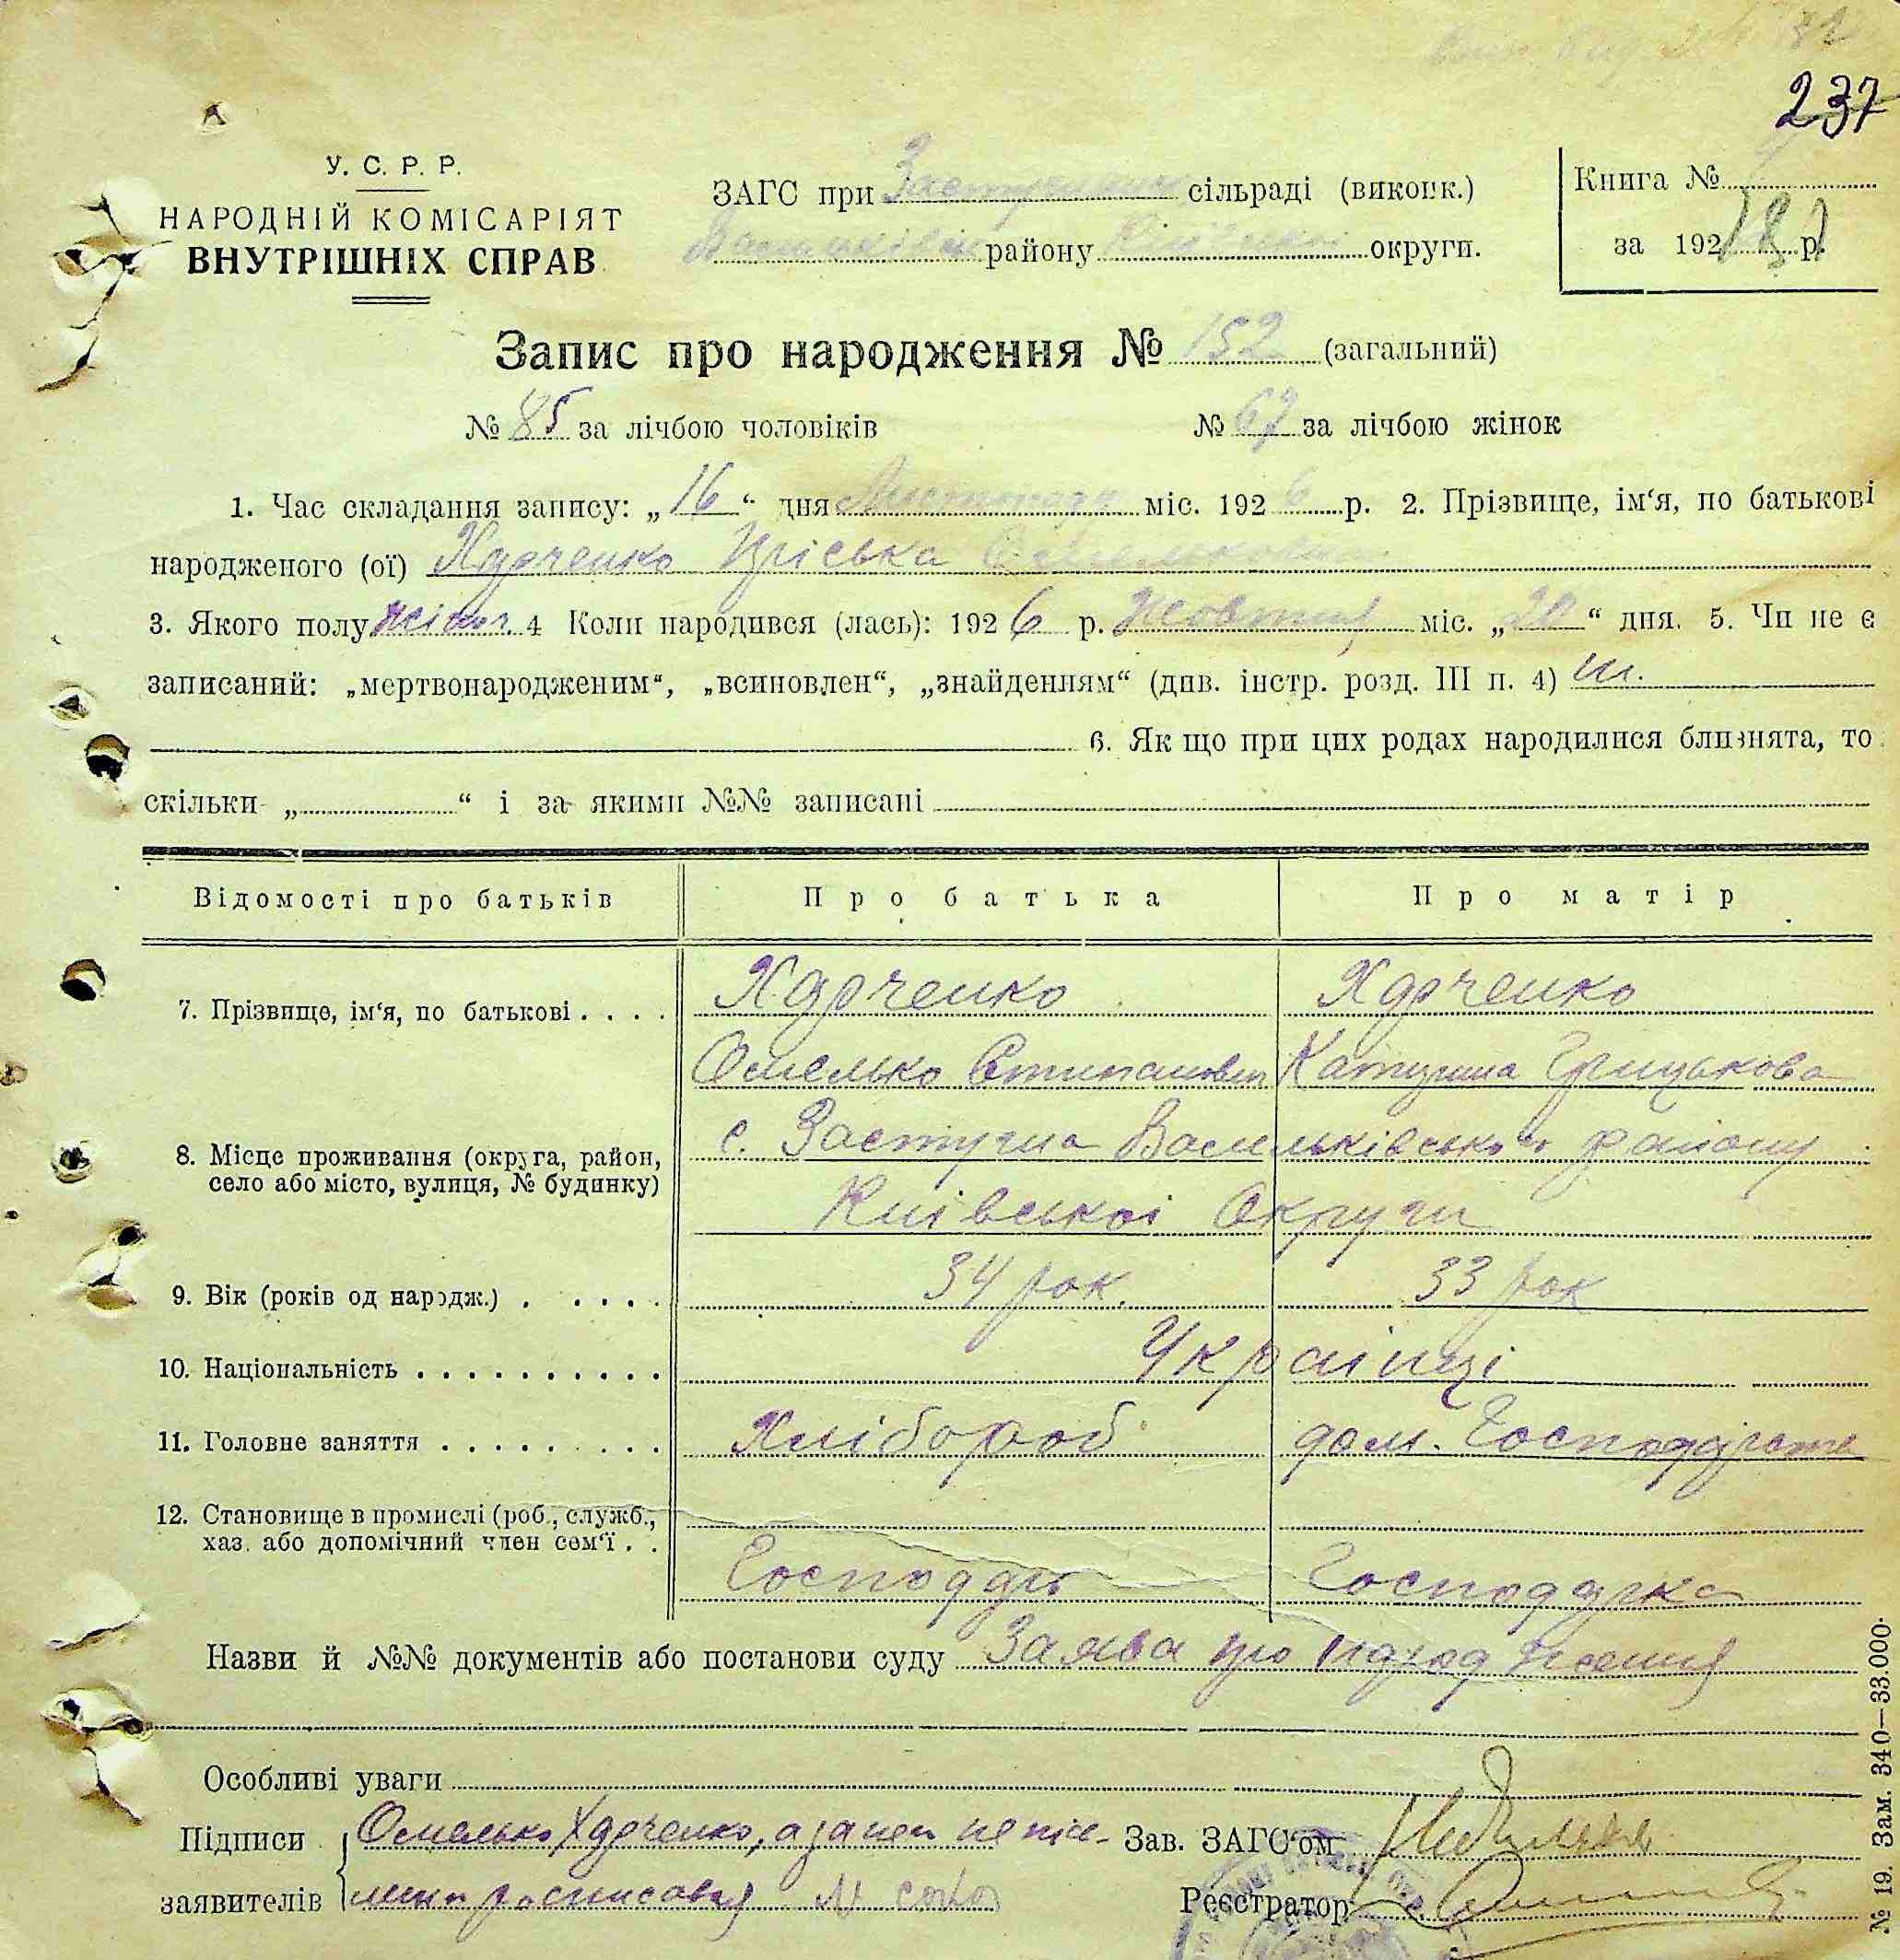 237
У. С. Р. Р.
НАРОДНІЙ КОМІСАРІЯТ
ВНУТРІШНІХ СПРАВ
ЗАГС при сільраді (виконк.)
району округи.
Книга №
за 192 р.
Запис про народження № 152 (загальний)
№ 85 за лічбою чоловіків № 67 за лічбою жінок
1. Час складання запису: „16“ дня Листопада міс. 1926 р. 2. Прізвище, ім‘я, по батькові
народженого (ої) Харченко
3. Якого полу жіноч. 4 Коли народився (лась): 1926 р. Жовтня міс. „20“ дня. 5. Чи не є
записаний: „мертвонародженим“, „всиновлен“, „знайденням“ (див. інстр. розд. III п. 4) ні.
6. Як що при цих родах народилися близнята, то
скільки „ “ і за якими №№ записані
Відомості про батьків Про батька Про матір
7. Прізвище, ім‘я, по батькові . . . . Харченко Харченко
Омелько Катерина Грицькова
8. Місце проживання (округа, район,
село або місто, вулиця, № будинку)
с. Застугна Васильківського району
Київської Округи
9. Вік (років од народж.) . . . . . 34 рок. 33 рок
10. Національність . . . . . . . . . . Українці
11. Головне заняття . . . . . . . . . Хлібороб дом.
12. Становище в промислі (роб., служб.,
хаз. або допомічний член сем‘ї . .
Господар Господарка
Назви й №№ документів або постанови суду Заява про народження
Особливі уваги
Підписи Омелько Харченко, а за неп Зав. ЗАГС‘ом
заявителів Реєстратор
№ 19. Зам. 340—33.000.